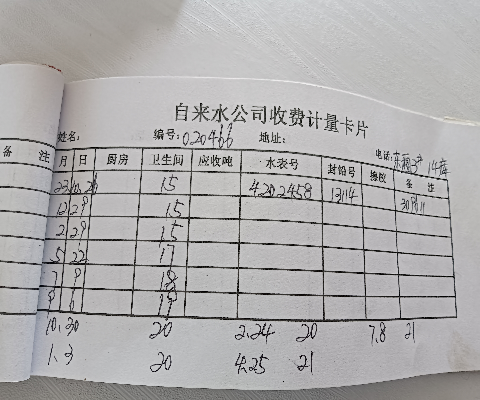 自来水公司收费计量卡片
姓名: 编号: 020466 地址: 电话:
备 注 月 日 厨房 卫生间 应收吨 水表号 封铅号 换校 备 注
15 4202458 13114
12 29 15
2 29 15
5 22 17
7 9 18
9 6 19
10.30 20 2.24 20 7.8 21
1.3 20 4.25 21